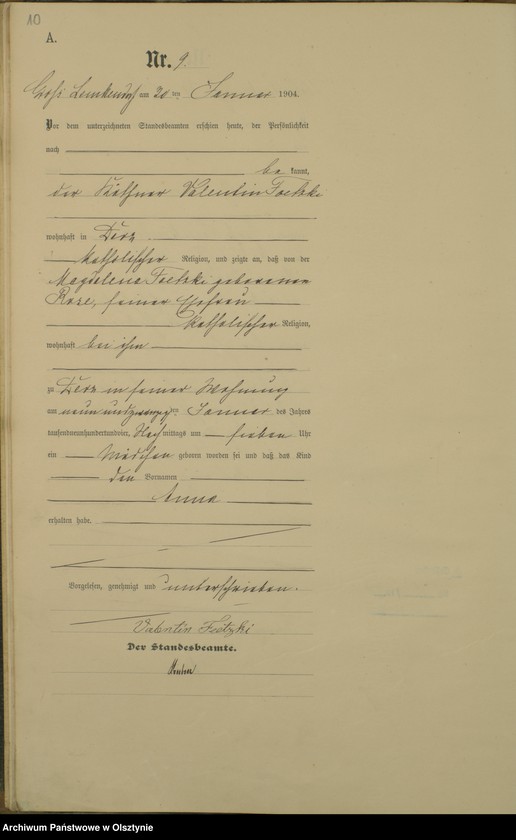 10
A.
Nr. 9.
Groß Lemkendorf am 30 ten Januar 1904.
Vor dem unterzeichneten Standesbeamten erschien heute, der Persönlichkeit
nach
be kannt,
der Käthner Valentin
wohnhaft in Derz
katholischer Religion, und zeigte an, daß von der
Magdalena geborenen
seiner Ehefrau
katholischer Religion,
wohnhaft bei ihm
zu Derz in seiner Wohnung
am neun und zwanzig ten Januar des Jahres
tausendneunhundertundvier, Nach mittags um sieben Uhr
ein Mädchen geboren worden sei und daß das Kind
den Vornamen
Anna
erhalten habe.
Vorgelesen, genehmigt und unterschrieben.
Valentin
Der Standesbeamte.
Archiwum Państwowe w Olsztynie